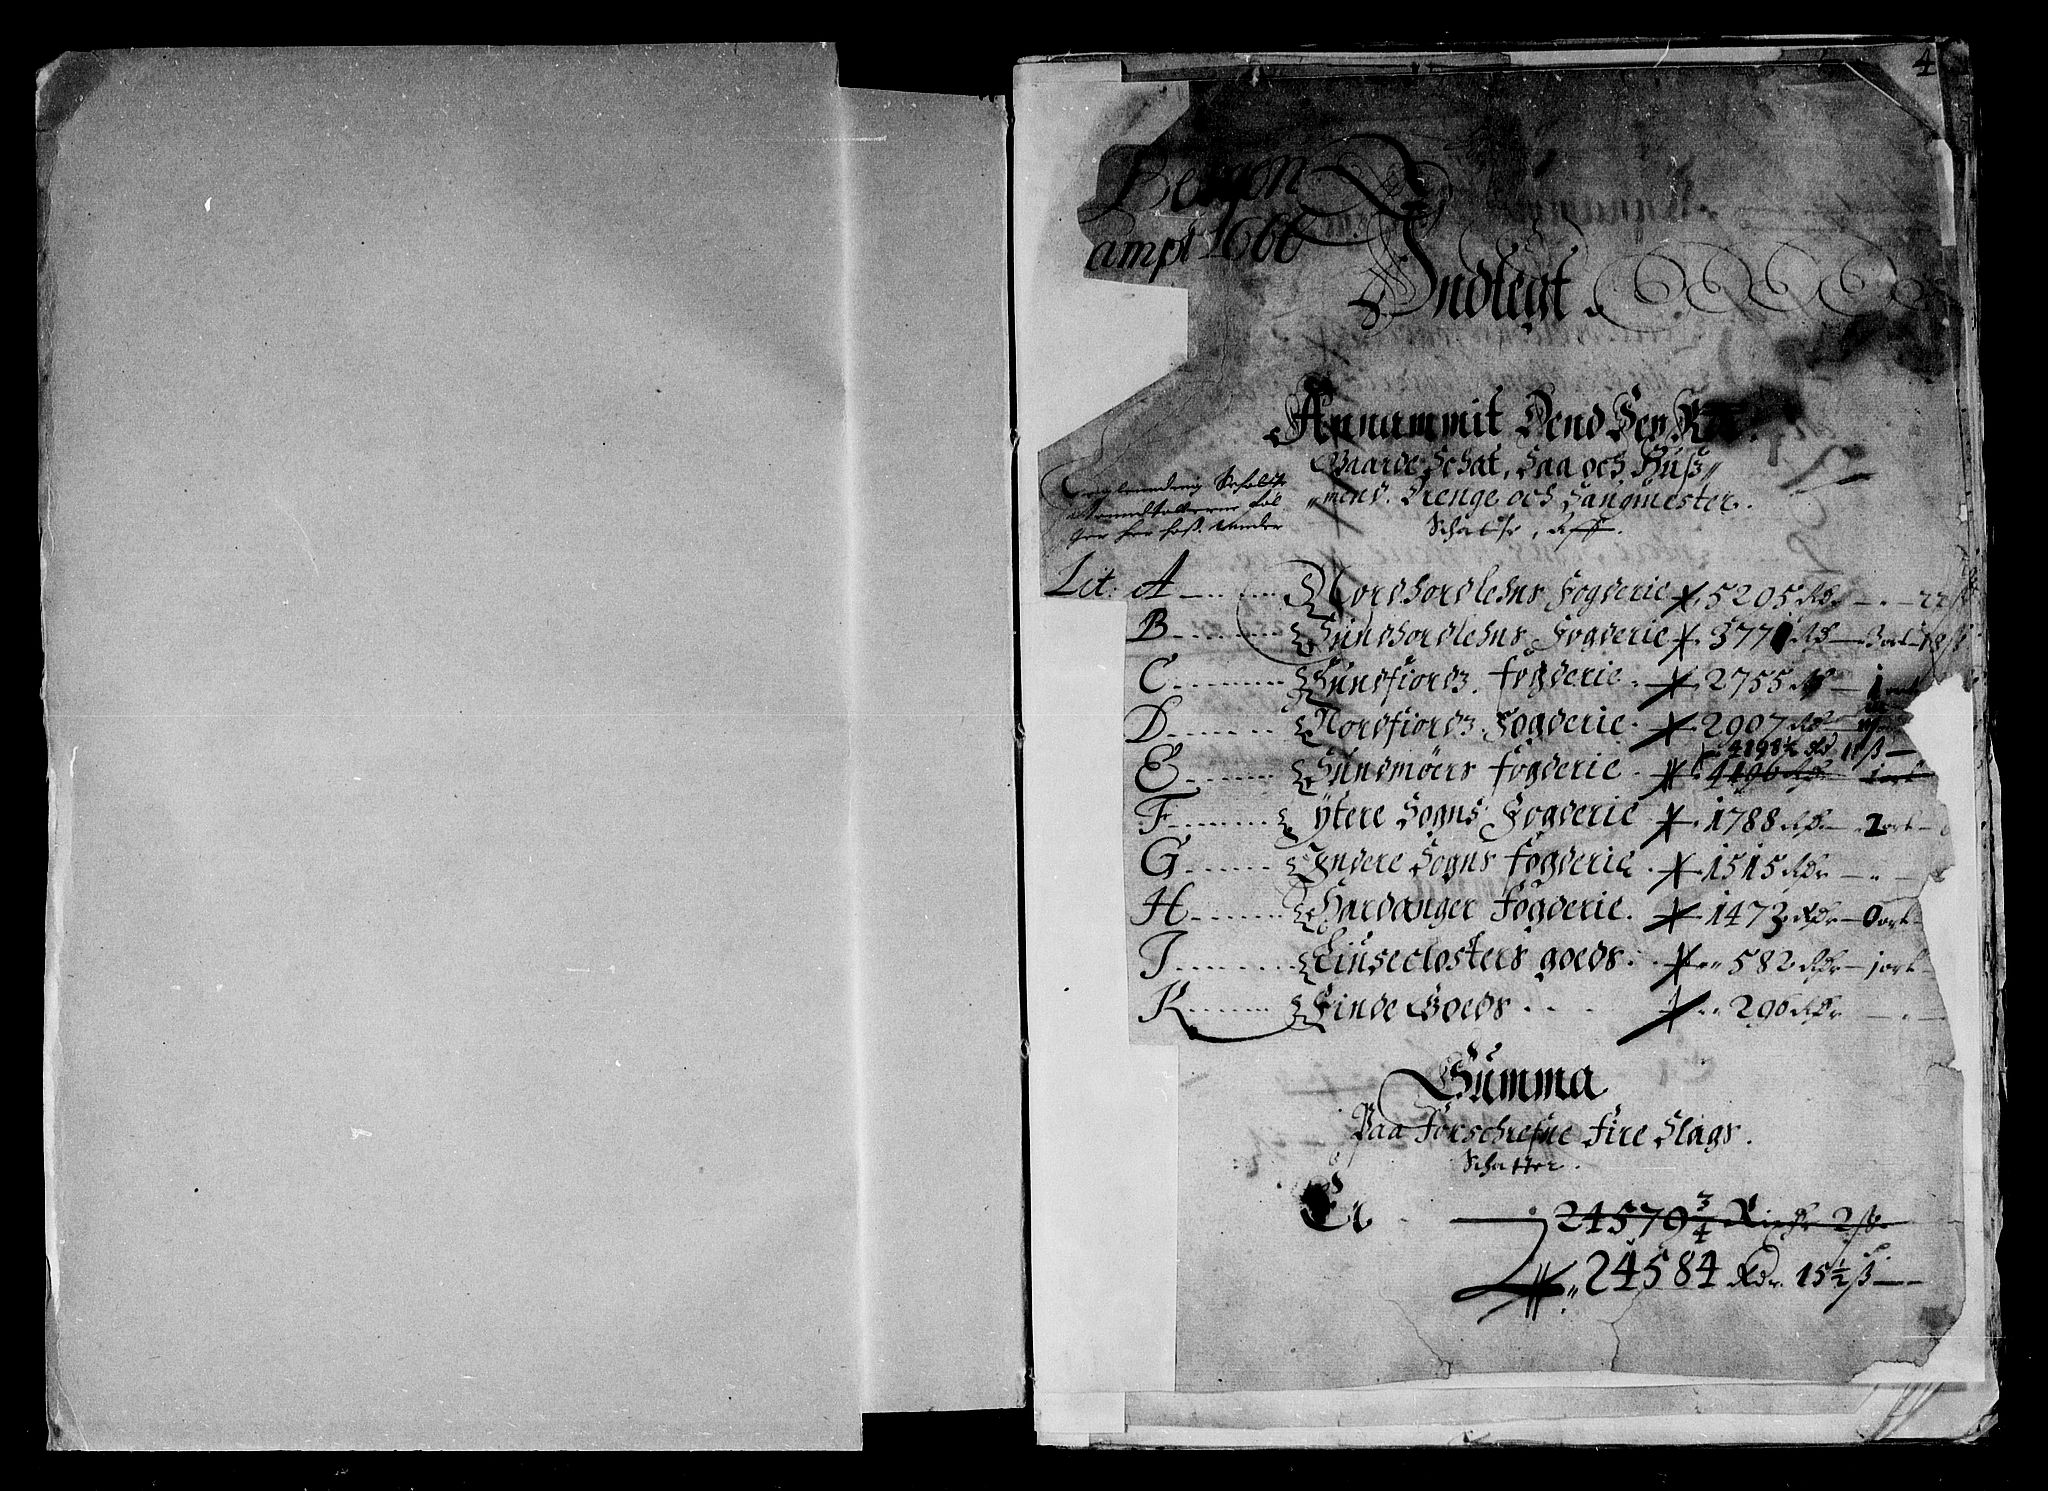 4
Bergen
ampt 1666
Indtegt
Annammit Dend Sex Rdr.
Gaarde Schat, Saa och Huß,,
,,mend. Drenge och Saugmester.
Schatter,
Lit: A Nordhordlehns Fogderie 5205 Rdr
B Sundhordlehns Fogderie 377 Rdr
C Sundfiords. Fogderie. 2755 Rdr 1 ort
D Nordfiords. Fogderie. 2907 Rdr
4198½ Rd 11 ß
E Sundmöers Fogderie. 4196 Rdr 1 ort
F ytere Sogns Fogderie 1788 Rdr 2 ort
G Indere Sogns Fogderie. 1515 Rdr
H Hardanger Fogderie. 1473 Rdr 0 ort
I Liuseclosters goeds. 582 Rdr 1 ort
K Finde Goeds 290 Rdr
Summa
Paa Forschrefne Fire Slags.
Schatter.
Er 24579¾ Rixdr 2 ß
24584 Rdr. 15½ ß